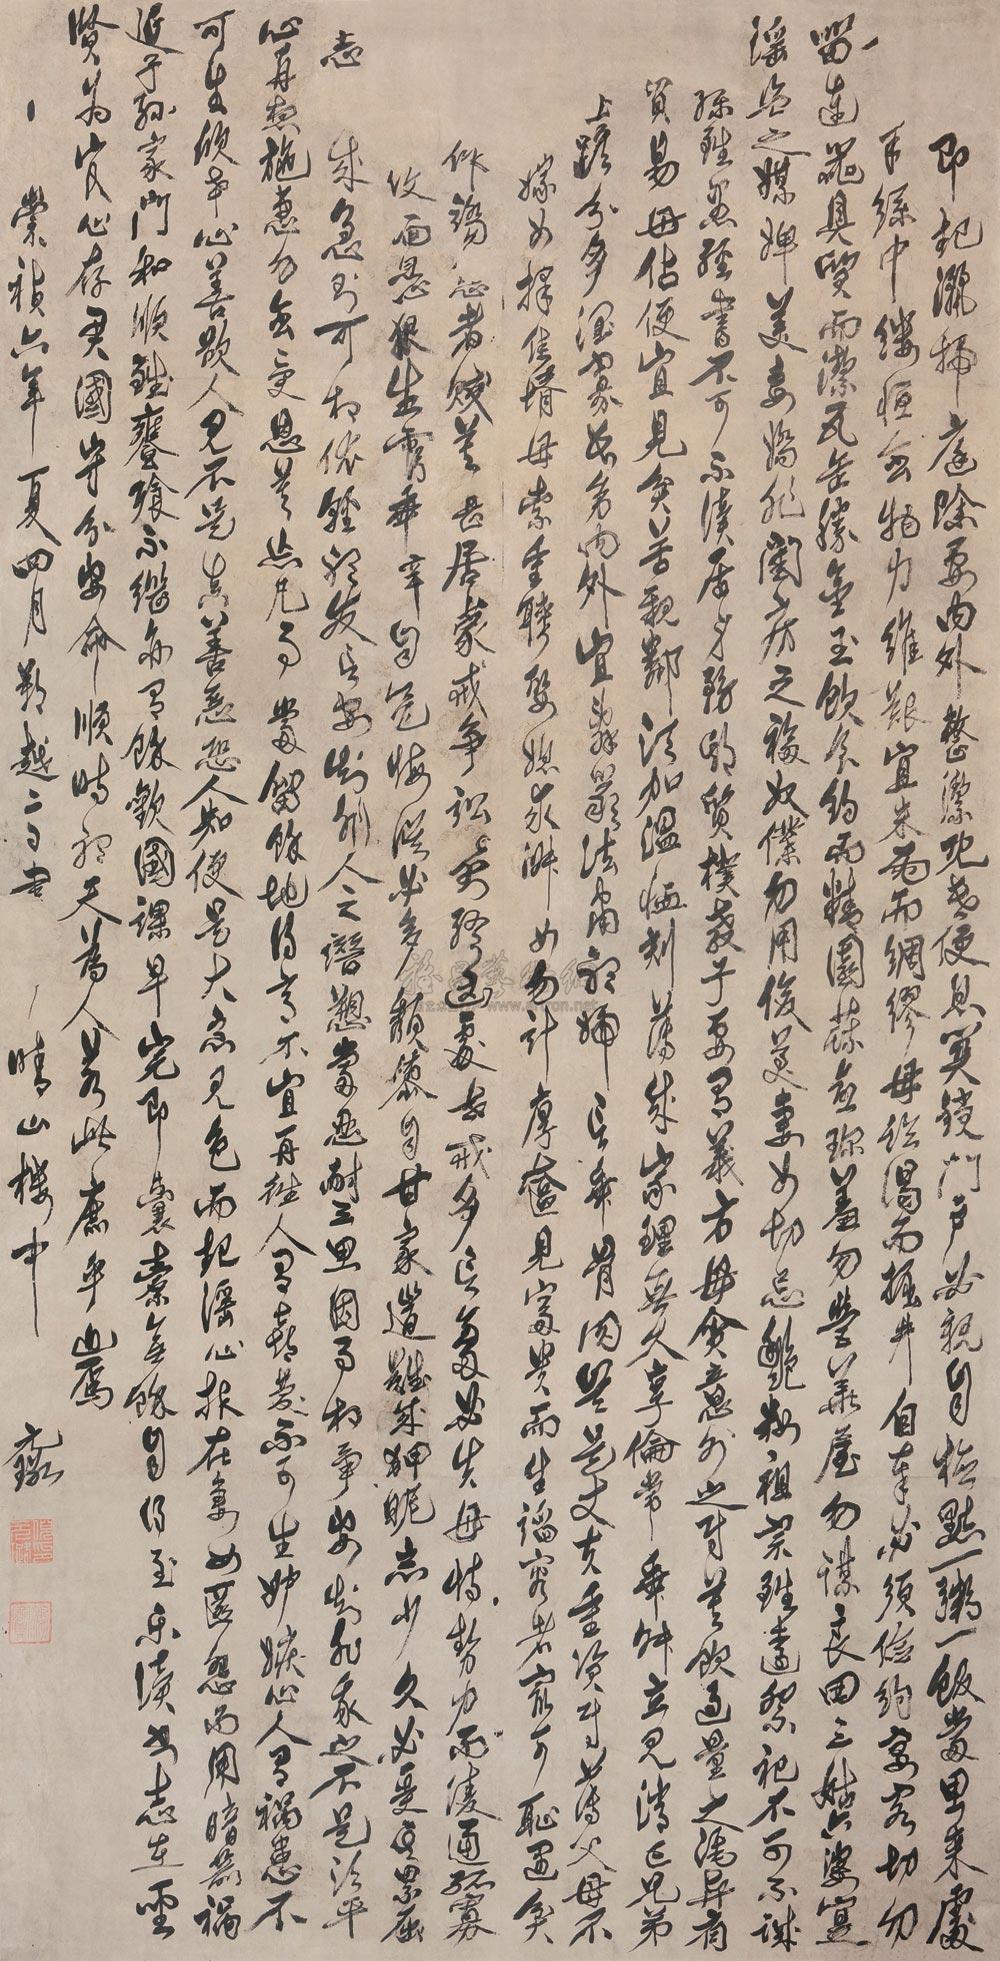 即起灑掃庭除要內外整潔既昏便息關鎖門戶必親自檢點一粥一飯當思來處
半絲半縷恒念物力維艱宜未雨而綢繆毋臨渴而掘井自奉必須儉約宴客切勿
留連器具質而潔瓦缶勝金玉飲食約而精園蔬愈珍羞勿營華屋勿謀良田三姑六婆寔
淫盜之媒婢美妾嬌非閨房之福奴僕勿用俊美妻女切忌艷妝祖宗雖遠祭祀不可不誠
孫雖愚經書不可不讀居身務期質樸教子要有義方毋貪意外之財莫飲過量之酒與肩
貿易毋佔便宜見貧苦親鄰須加溫恤刻薄成家理無久享倫常乖舛立見消亡兄弟
分多潤寡長幼內外宜辭嚴法肅聽婦言乖骨肉豈是丈夫重資財薄父母不
嫁女擇佳壻毋索重聘娶媳求淑女勿計厚奩見富貴而生諂容者最可恥遇貧
作驕態者賤莫甚居家戒爭訟訟則終凶處世戒多言言多必失毋恃勢力而凌逼孤寡
生乖自是悔誤必多頹惰自甘家道難成狎昵惡少久必受其累屈
志成急則可相依輕聽發言安知非人之譖愬當忍耐三思因事相爭安知非我之不是須平
心再想施惠勿念受恩莫忘凡事當留餘地得意不宜再往人有喜慶不可生妒嫉心人有禍患不
可生欣幸心善欲人見不是真善惡恐人知便是大惡見色而起淫心報在妻女匿怨而用暗箭禍
延子孫家門和順雖饔飧不繼亦有餘歡國課早完即囊橐無餘自得至樂讀書志在聖
賢為官心存君國守分安命順時聽天為人若此庶乎近焉
崇禎六年夏四月朔越二日書 晴山樓中